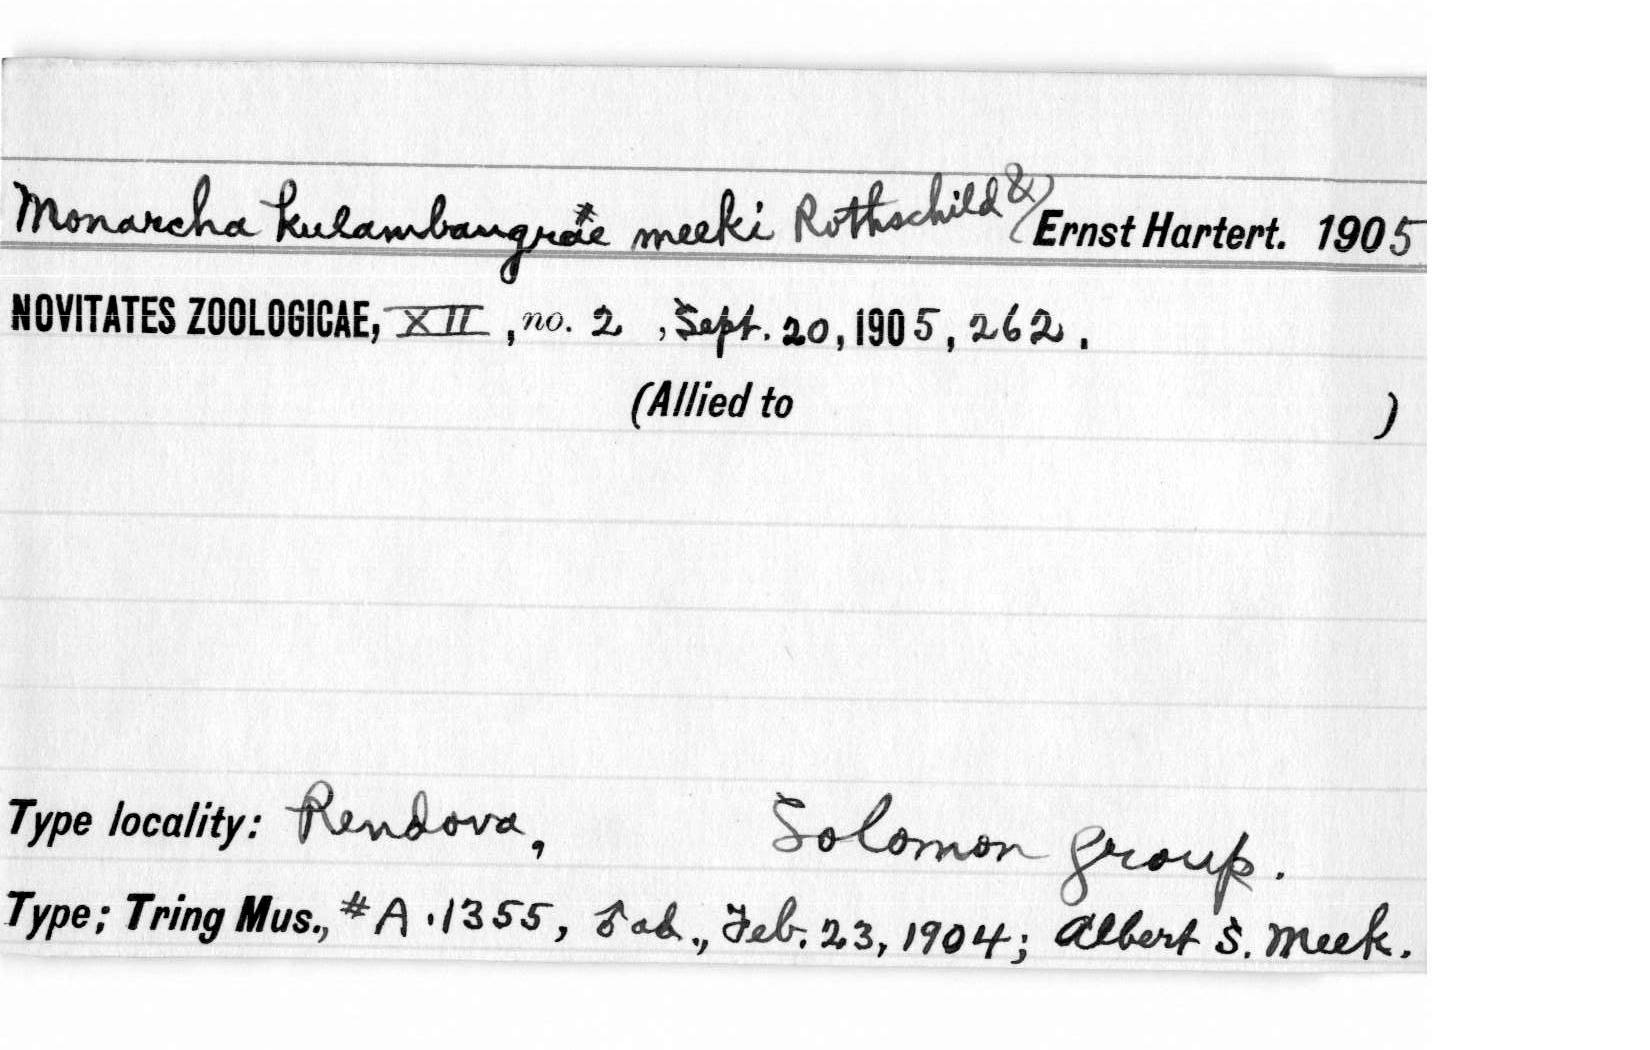 Monarcha kulambangrae meeki Rothschild & Ernst Hartert. 1905
NOVITATES ZOOLOGICAE, XII, no. 2, Sept. 20, 1905, 262.
(Allied to )
Type locality: Rendova, Solomon group.
Type; Tring Mus., #A.1355, ♂ ad., Feb. 23, 1904; Albert S. Meek.